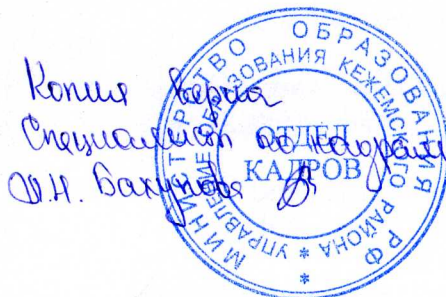 Копия верна
Специалист по кадрам
О.Н. Бакунова
МИНИСТЕРСТВО ОБРАЗОВАНИЯ РФ *
УПРАВЛЕНИЕ ОБРАЗОВАНИЯ КЕЖЕМСКОГО РАЙОНА *
ОТДЕЛ
КАДРОВ